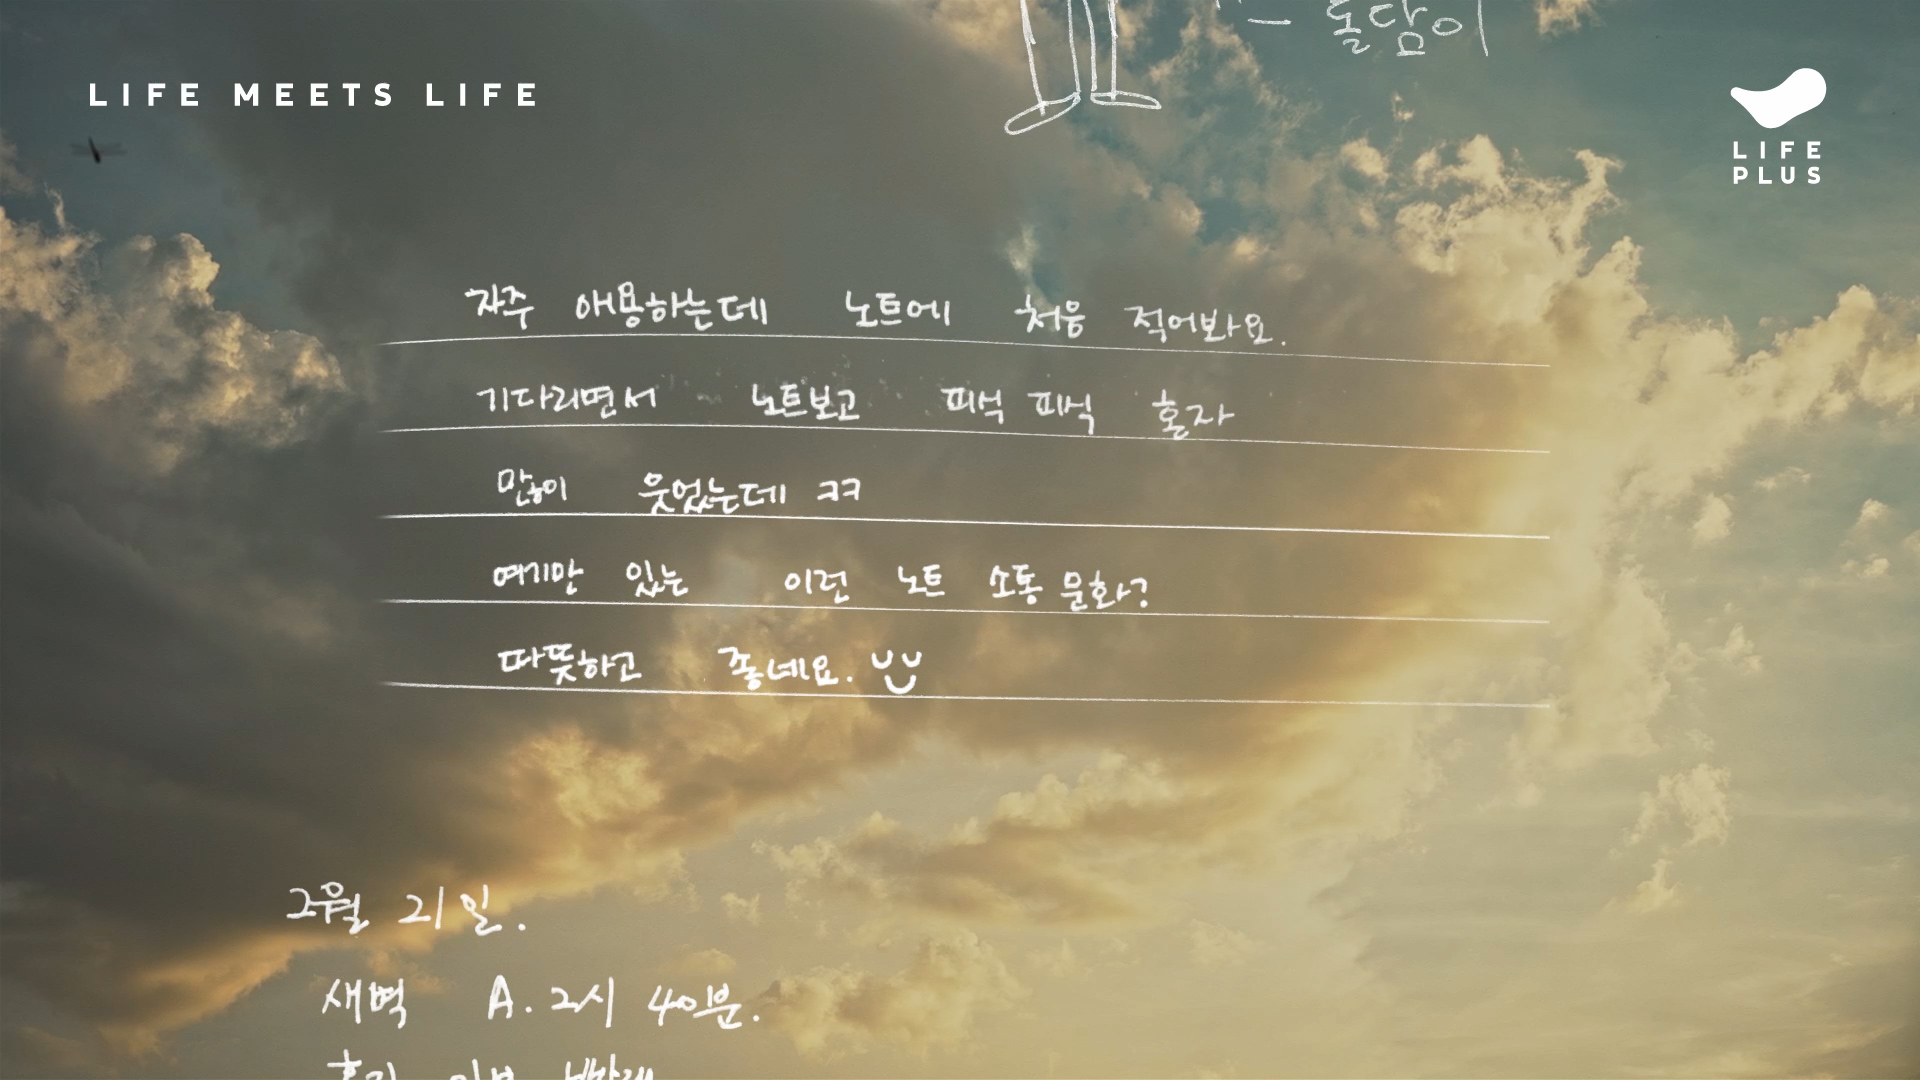 돌담이
LIFE MEETS LIFE
LIFE
PLUS
자주 애용하는데 노트에 처음 적어봐요.
기다리면서 노트보고 피식 피식 혼자
많이 웃었는데 ㅋㅋ
여기만 있는 이런 노트 소통 문화?
따뜻하고 좋네요.
2월 21일.
새벽 A. 2시 40분.